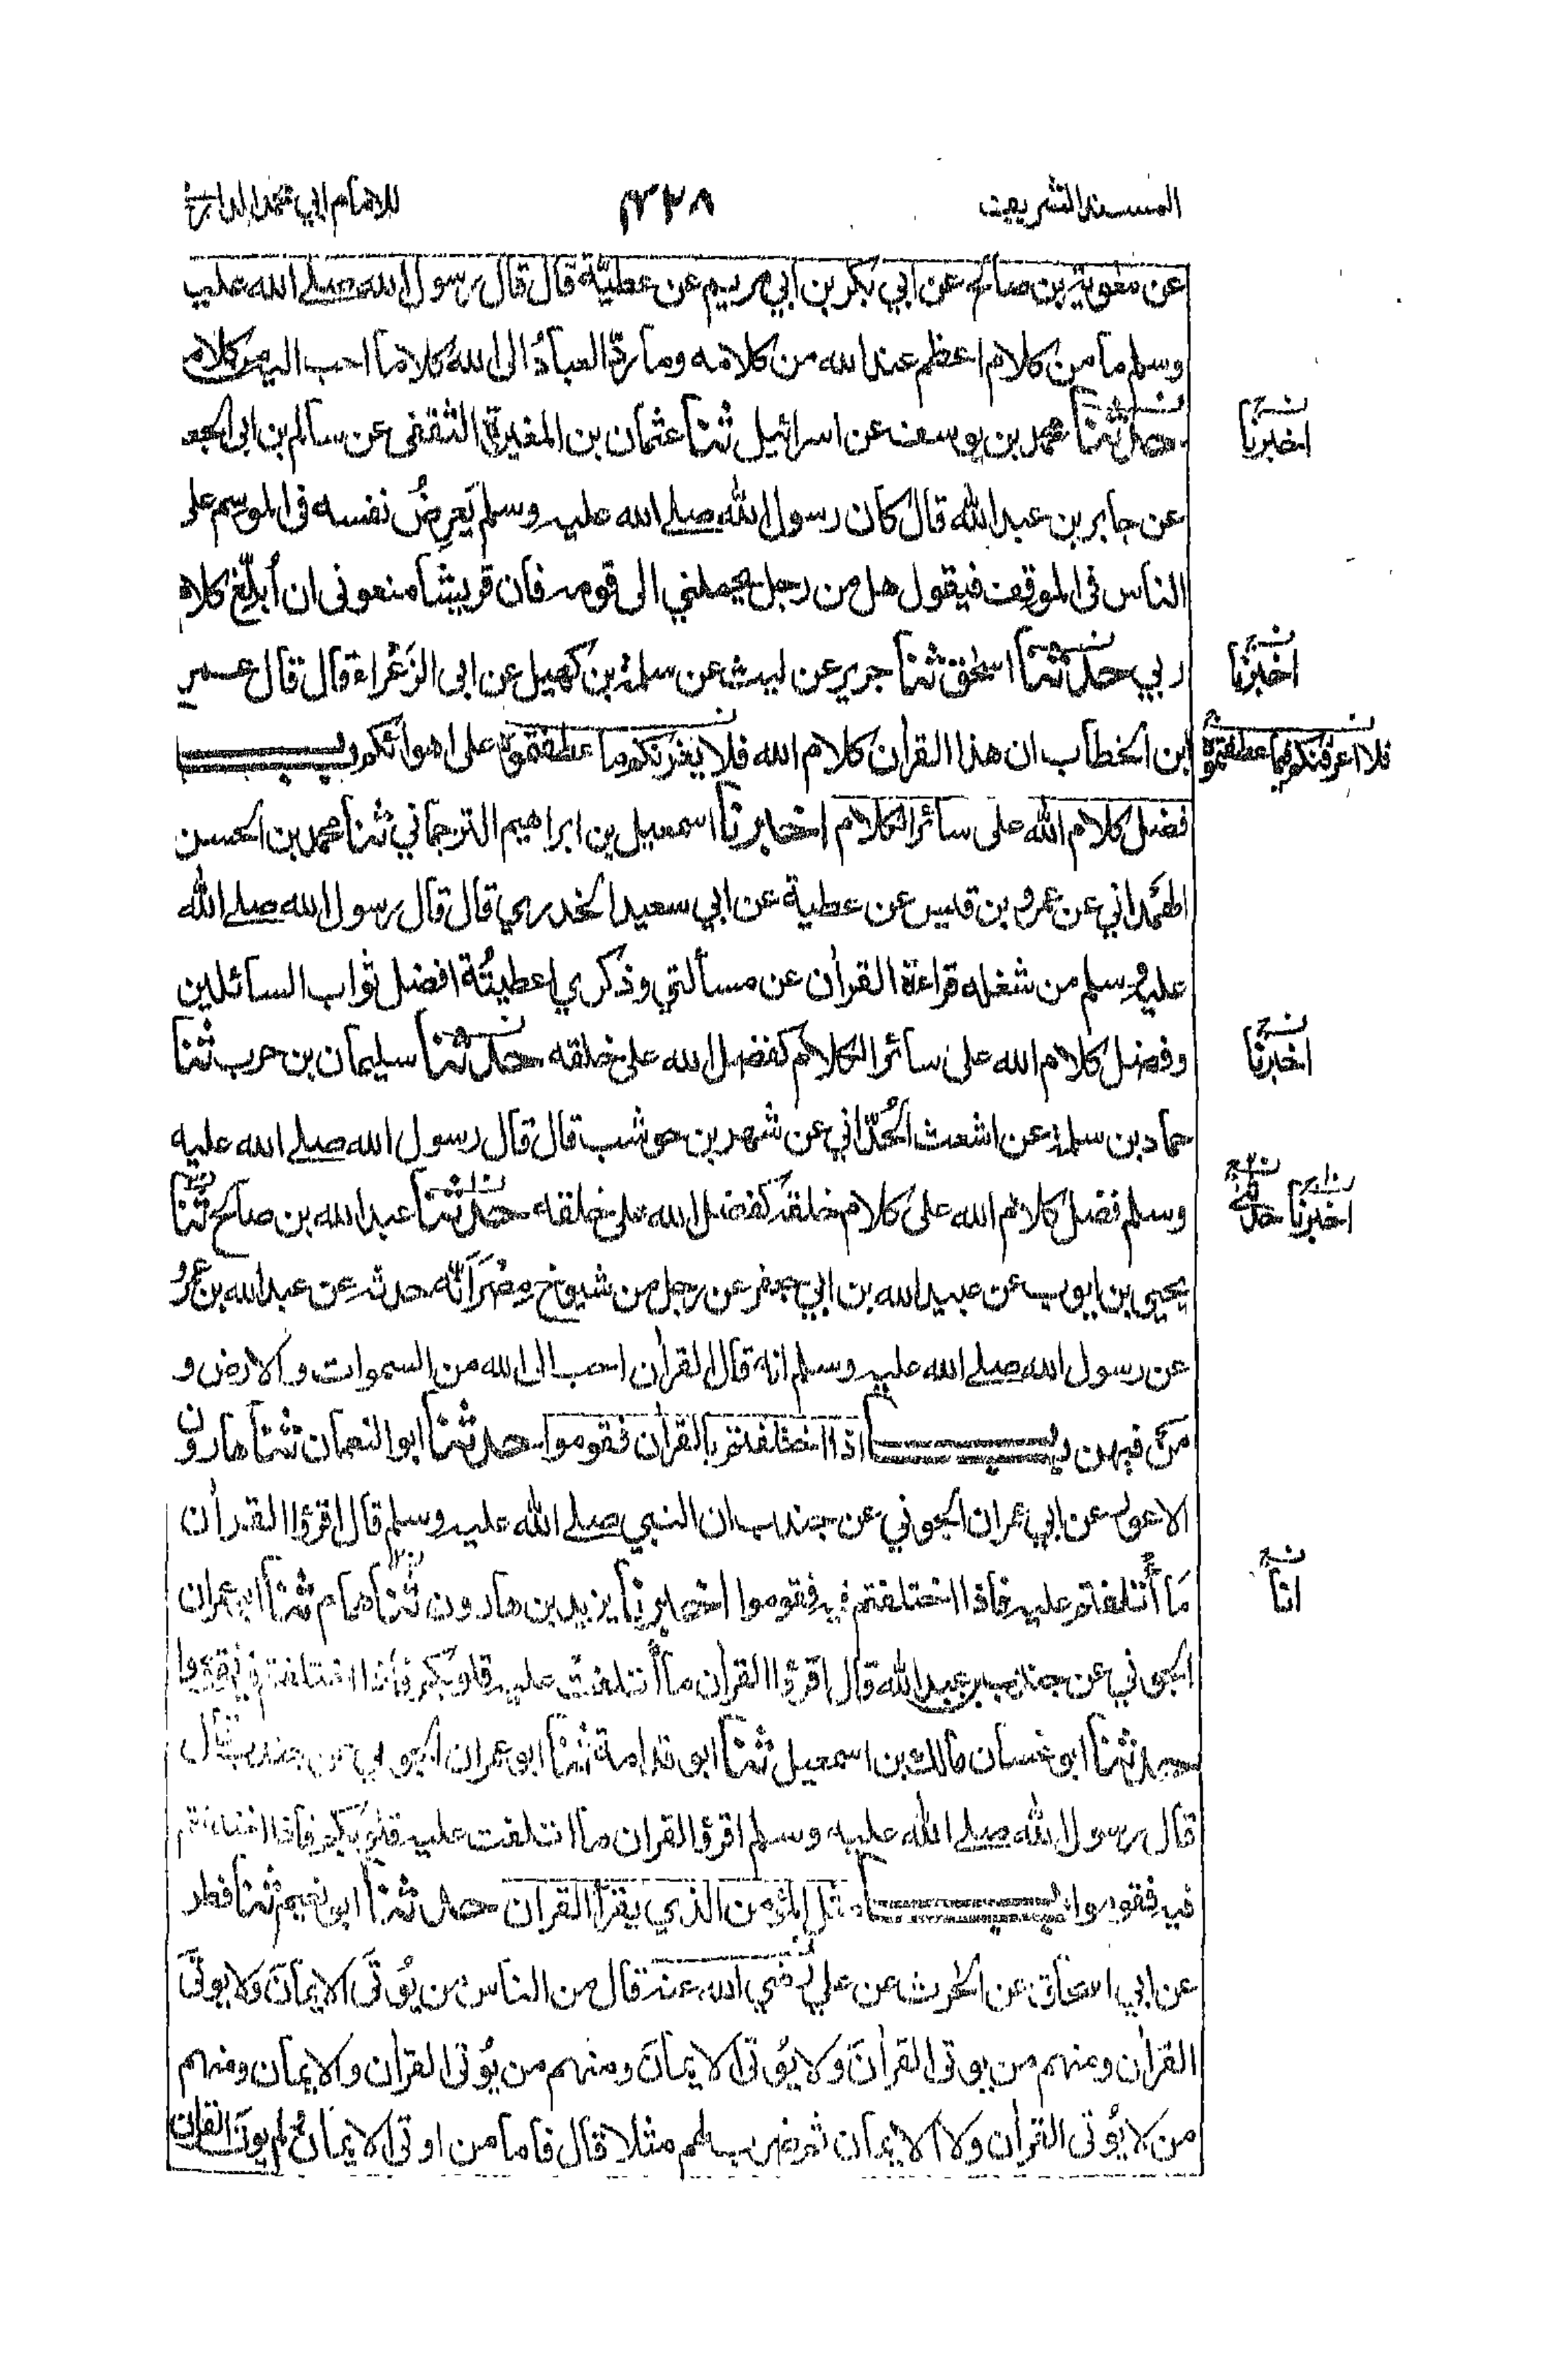 المسند الشريف ٤٣٨ للامام ابي محمد الدارمي
عن معوية بن صالح عن ابي بكر بن ابي مريم عن عطية قال قال رسول الله صلى الله عليه
وسلم ما من كلام اعظم عند الله من كلامه وما ردّ العبادُ الى الله كلاما احب اليه من كلامه
حدثنا محمد بن يوسف عن اسرائيل ثنا عثمان بن المغيرة الثقفي عن سالم بن ابي الجعد
نسخ اخبرنا
عن جابر بن عبد الله قال كان رسول الله صلى الله عليه وسلم يَعرِضُ نفسه في الموسم على
الناس في الموقف فيقول هل من رجل يحملني الى قومه فان قريشا منعوني ان أُبلّغ كلام
ربي حدثنا اسحٰق ثنا جرير عن ليث عن سلمة بن كهيل عن ابي الزَعْراء قال قال عمر
نسخ اخبرنا
ابن الخطاب ان هذا القرآن كلام الله فلا يغرنكم ما عطفتموه على اهوائكم باب
فلا اعرفنكم فيما عطفتموه
فضل كلام الله على سائر الكلام اخبرنا اسمعيل بن ابراهيم الترجماني ثنا محمد بن الحسن
الهَمْداني عن عمرو بن قيس عن عطية عن ابي سعيد الخدري قال قال رسول الله صلى الله
عليه وسلم من شغله قراءة القرآن عن مسألتي وذكري اعطيتُه افضل ثواب السائلين
وفضل كلام الله على سائر الكلام كفضل الله على خلقه حدثنا سليمان بن حرب ثنا
نسخ اخبرنا
حماد بن سلمة عن اشعث الحُدّاني عن شهر بن حوشب قال قال رسول الله صلى الله عليه
وسلم فضل كلام الله على كلام خلقه كفضل الله على خلقه حدثنا عبد الله بن صالح ثنا
اخبرنا
يحيى بن ايوب عن عبيد الله بن ابي جعفر عن رجل من شيوخ مِصْرَ اَنّه حدثه عن عبد الله بن عمرو
عن رسول الله صلى الله عليه وسلم انه قال القرآن احب الى الله من السموات والارض و
مَنْ فيهن باب اذا اختلفتم بالقرآن فقوموا حدثنا ابو النعمان ثنا هارون
الاعور عن ابي عمران الجوني عن جندب ان النبي صلى الله عليه وسلم قال اقرؤا القرآن
مَا أْتلفتم عليه فاذا اختلفتم فيه فقوموا اخبرنا يزيد بن هارون ثنا همام ثنا ابو عمران
نسخ انا
الجوني عن جندب بن عبد الله قال اقرؤا القرآن ما أْتلفتْ عليه قلوبكم فاذا اختلفتم فيه فقوموا
حدثنا ابو غسان مالك بن اسمعيل ثنا ابو قدامة ثنا ابو عمران الجوني عن جندب قال
قال رسول الله صلى الله عليه وسلم اقرؤا القران ما ائتلفت عليه قلوبُكم فاذا اختلفتم
فيه فقوموا باب مثل المؤمن الذي يقرأ القران حدثنا ابو نعيم ثنا فطر
عن ابي اسحاق عن الحرث عن علي رضي الله عنه قال من الناس من يُوتَى الايمانَ ولا يوتَى
القرآن ومنهم من يوتى القرآنَ ولا يُوتى الايمانَ ومنهم من يُوتى القرآن والايمان ومنهم
من لا يُوتى القرآن ولا الايمان ثم ضرب لهم مثلا قال فاما من اوتي الايمانَ ولم يوتَ القرآن